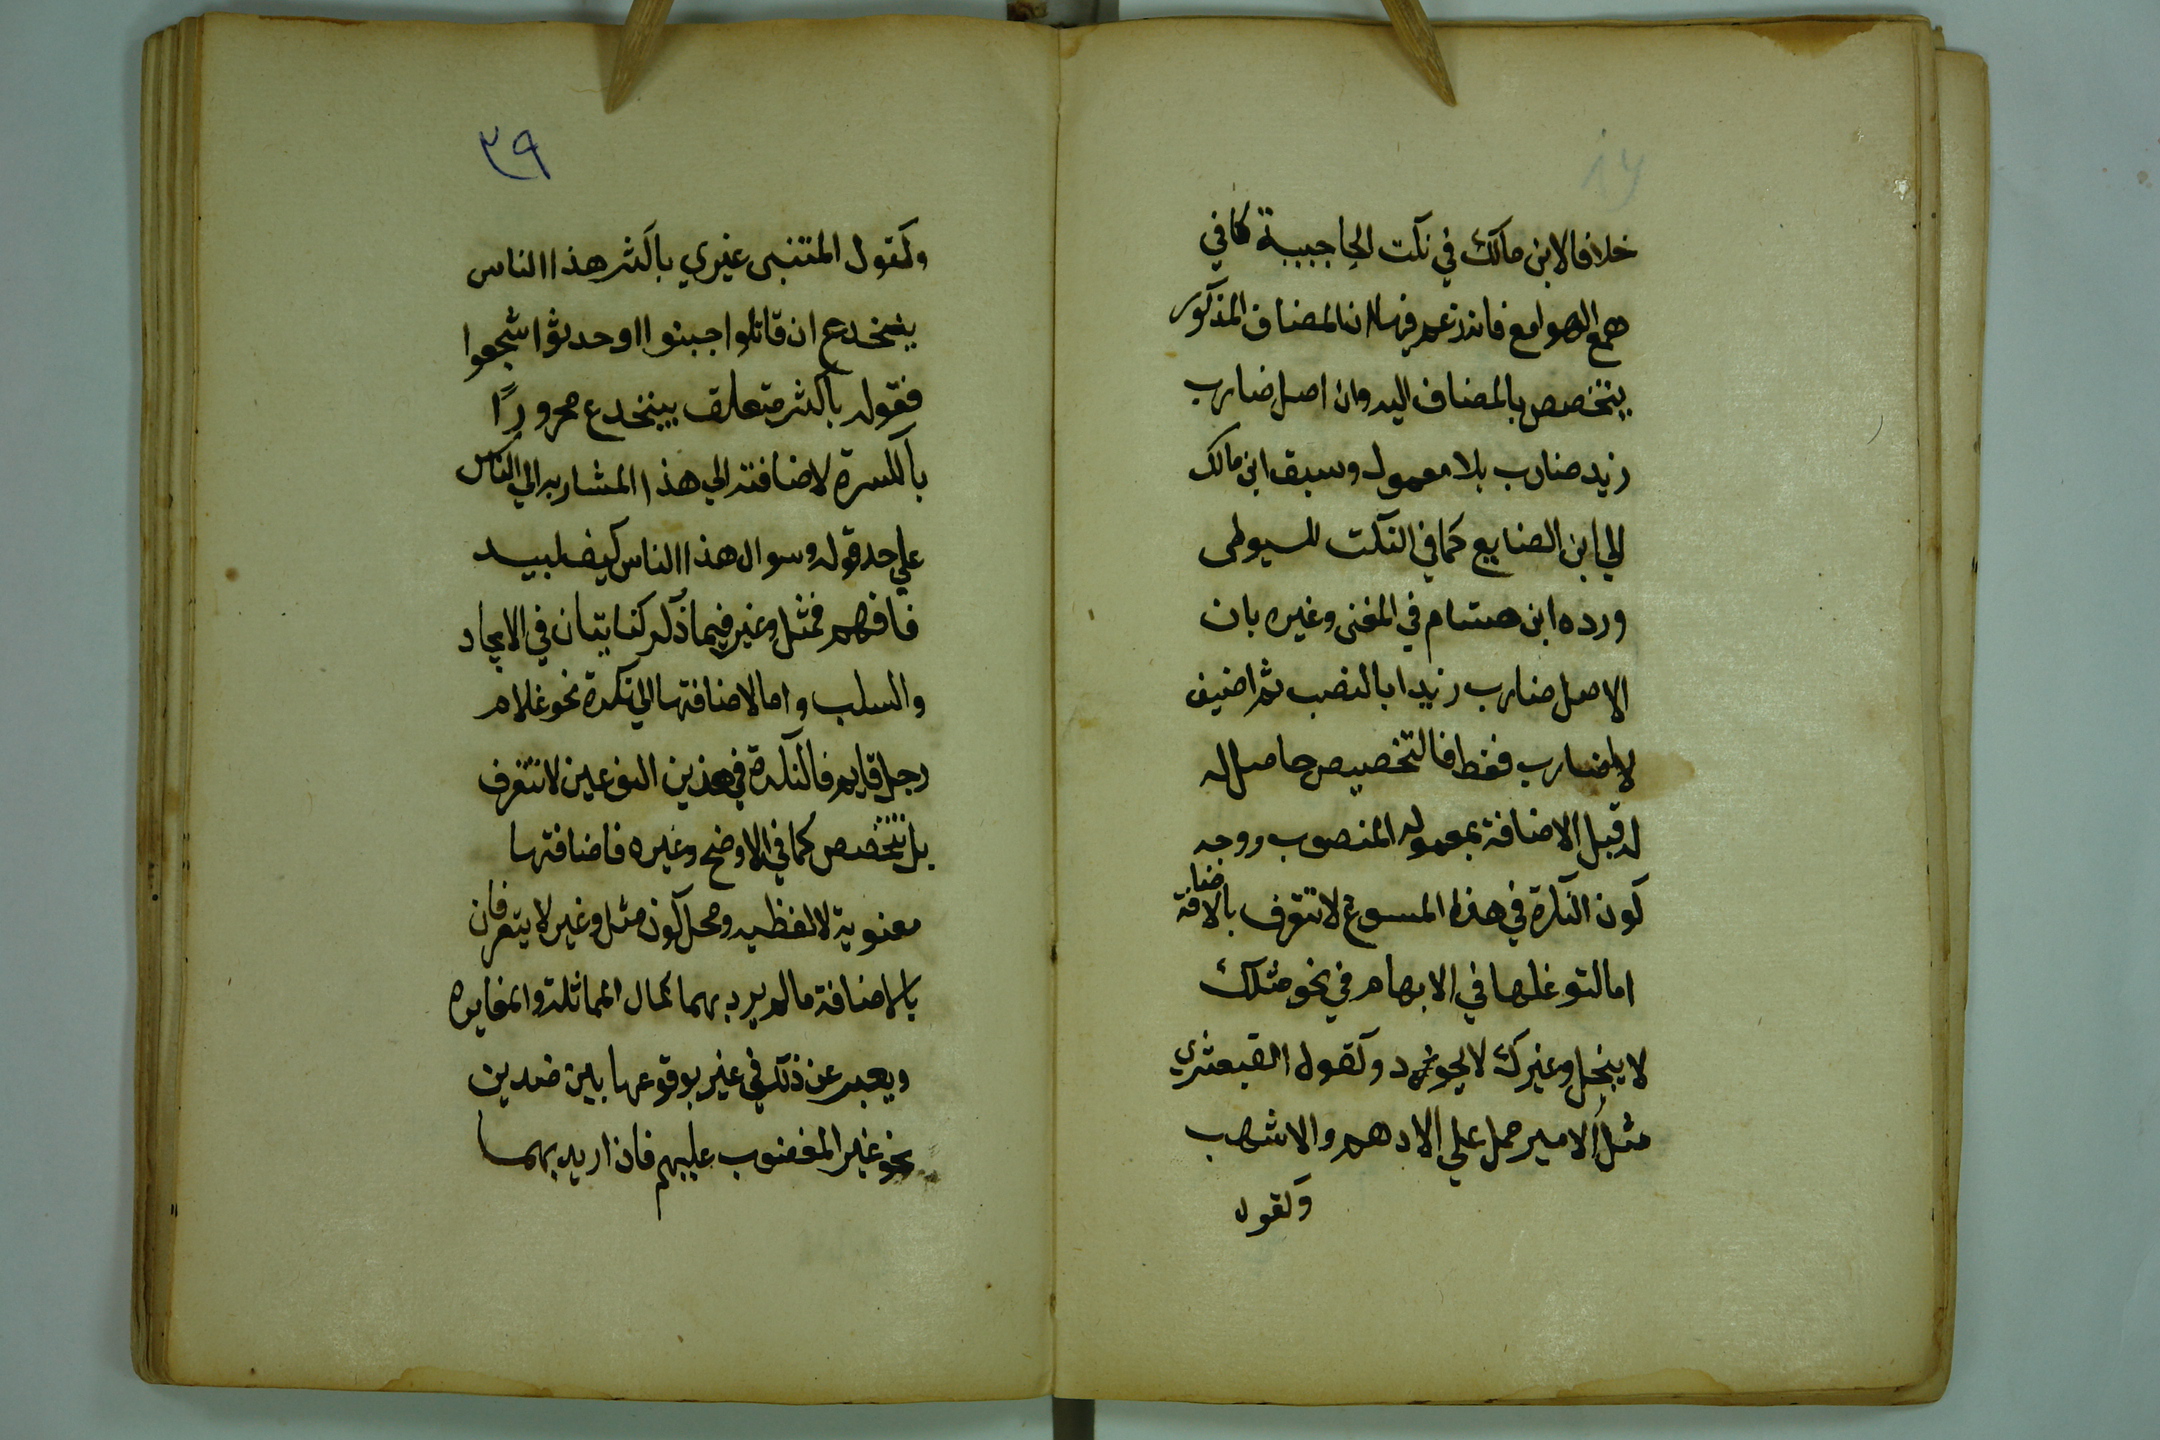 خلافا لابن مالك في نكت الحاجبية كما في
همع الهوامع فانه زعم فيها ان المضاف المذكور
يتخصص بالمضاف اليه وان اصل ضارب
زيد ضارب بلا معمول وسبق ابن مالك
الي ابن الصايع كما في النكت للسيوطي
ورده ابن هشام في المغني وغيره بان
الاصل ضارب زيدا بالنصب ثم اضيف
لا ضارب فقط فالتخصيص حاصل له
له قبل الاضافة بمعموله المنصوب ووجه
كون النكرة في هذا المسوغ لا تتعرف بالاضافة
اما لتوغلها في الابهام في نحو مثلك
لا يبخل وغيرك لا يجود وكقول القبعثري
مثل الامير حمل علي الادهم والاشهب
وكقول
٣٩
وكقول المتنبي غيري باكثر هذا الناس
ينخدع ان قاتلوا جبنوا او حدثوا شجعوا
فقوله باكثر متعلق بينخدع مجرورًا
بالكسرة لاضافته الي هذا المشار به الي الناس
علي حد قوله وسوال هذا الناس كيف لبيد
فافهم فمثل وغير فيما ذكر كنايتان في الايجاد
والسلب واما لاضافتها الي نكرة نحو غلام
رجل قايم فالنكرة في هذين النوعين لا تتعرف
بل تتخصص كما في الاوضح وغيره فاضافتها
معنوية لا لفظيه ومحل كون مثل وغير لا يتعرفان
بالاضافة ما لم يرد بهما كمال المماثلة والمغايره
ويعبر عن ذلك في غير بوقوعها بين ضدين
نحو غير المغضوب عليهم فان اريد بهما